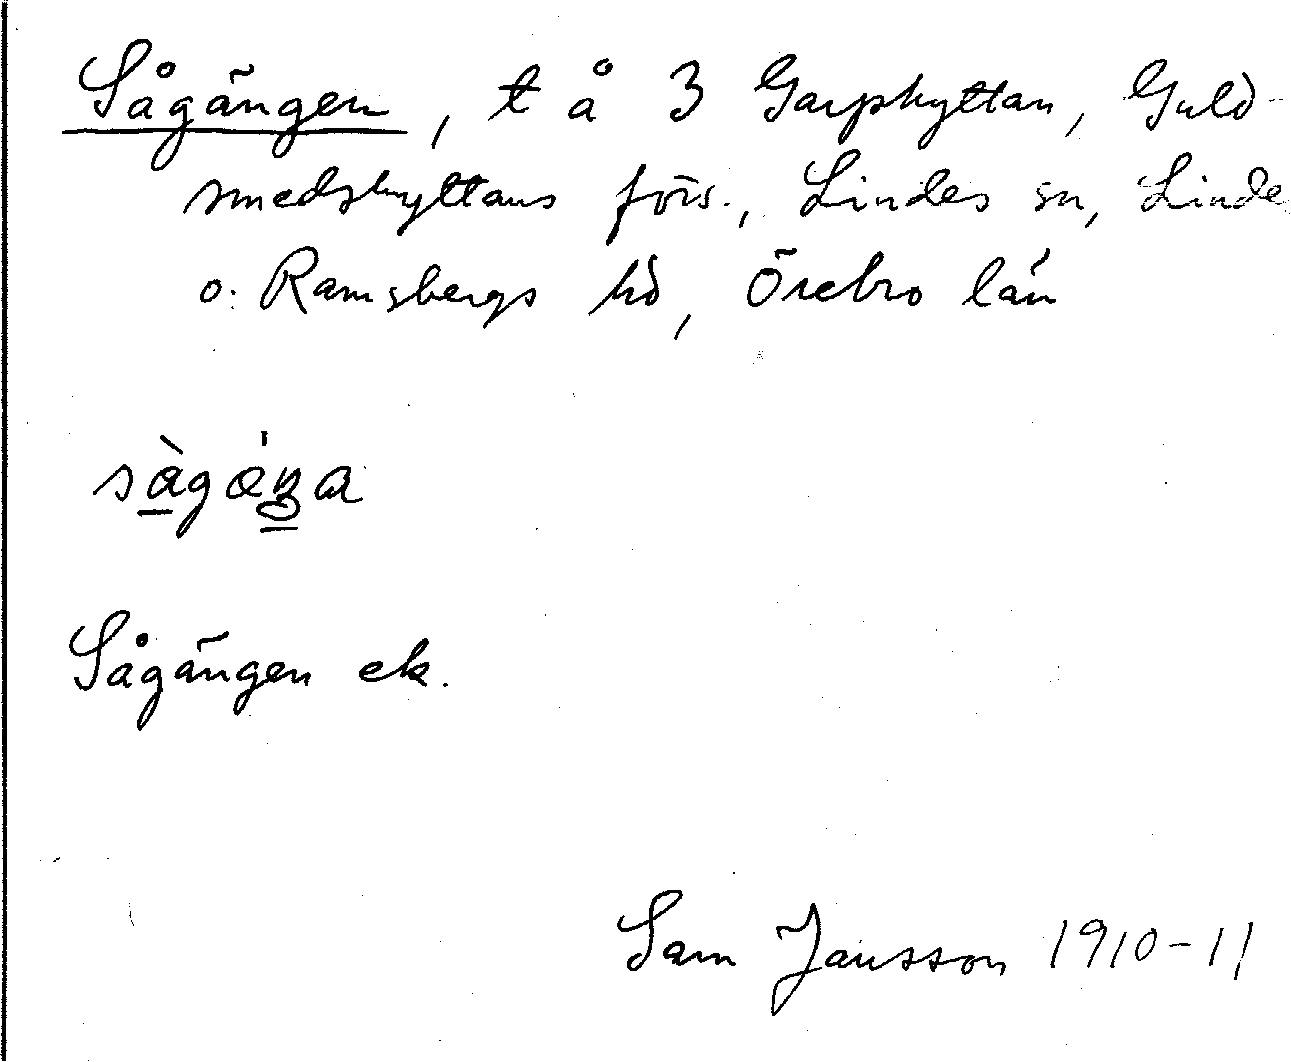 Sågängen, t å 3 Garphyttan, Guld-
smedshyttans förs., Lindes sn, Linde
o. Ramsbergs hd, Örebro län
Sågängen ek.
Sam Jansson 1910-11